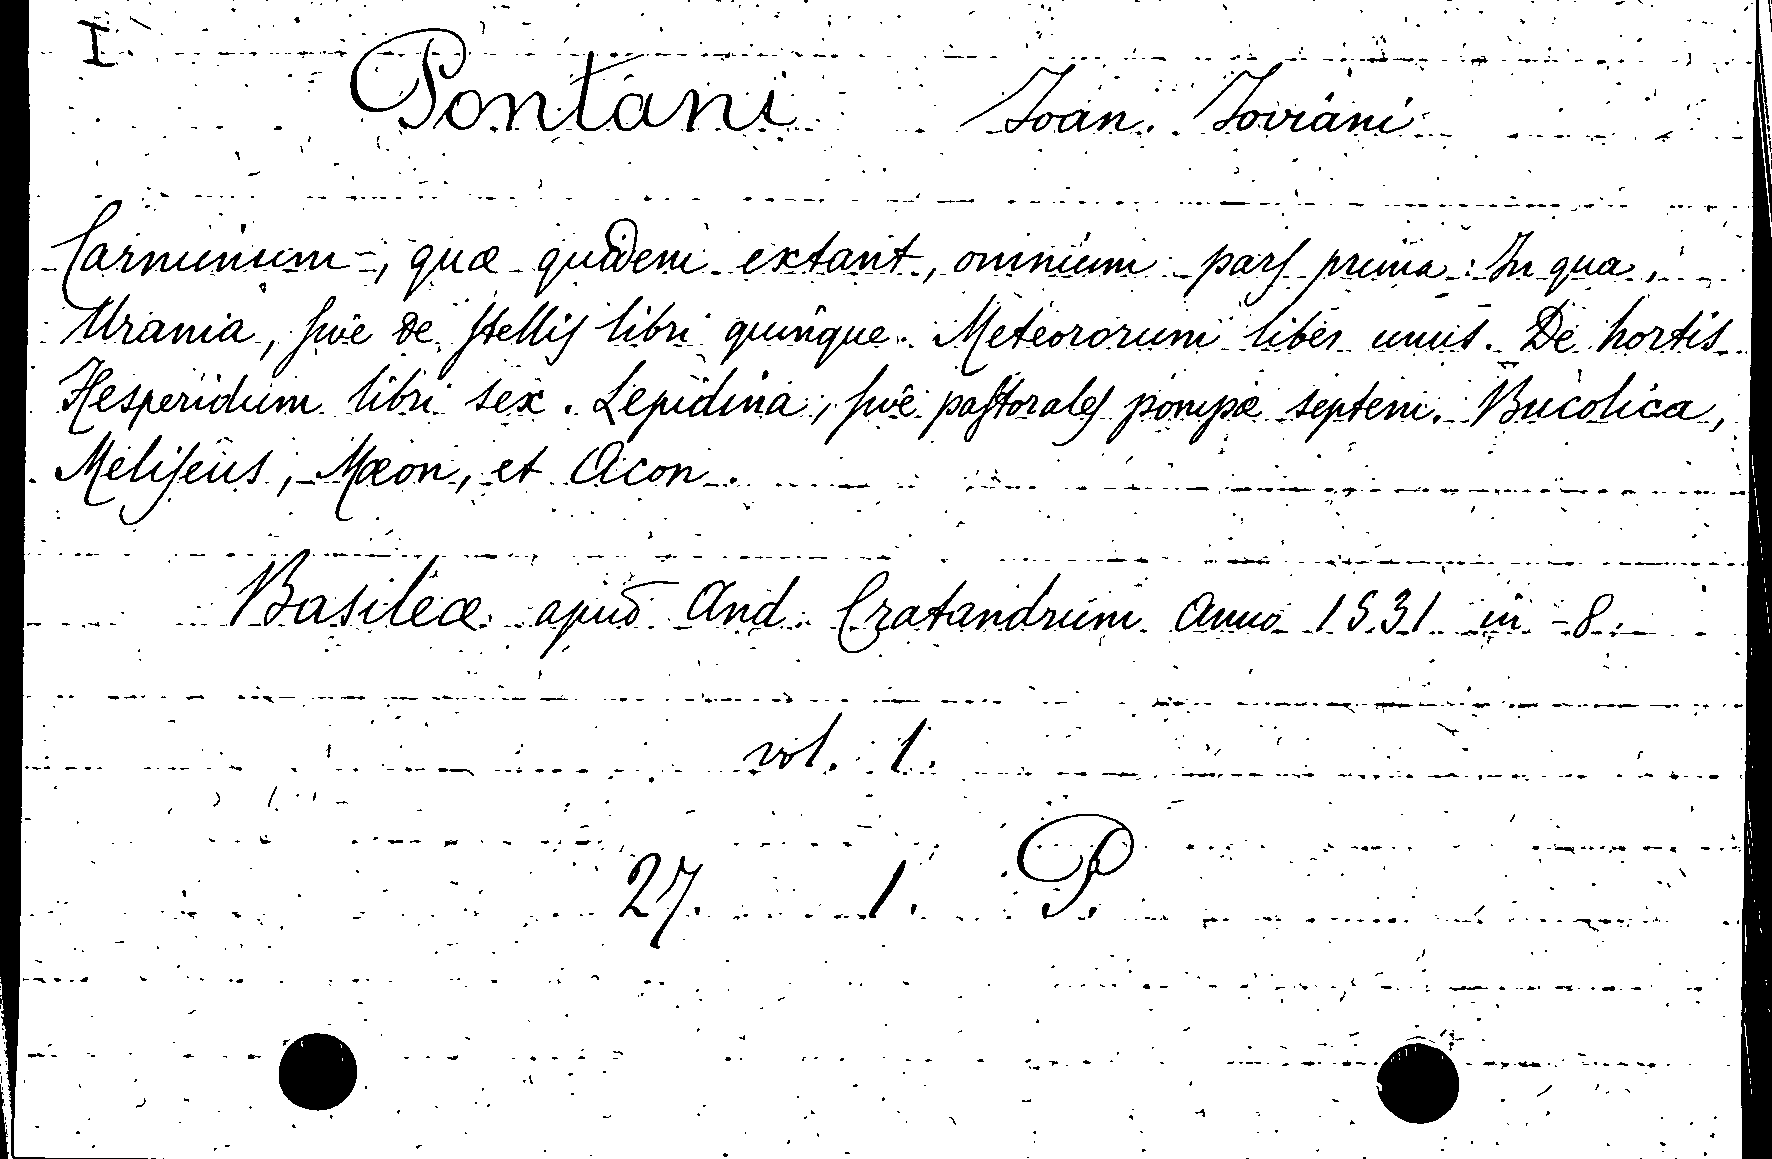 I.
Pontani Joan. Joviani
Carminum, quæ quidem extant, omnium parſ prima: In qua,
Urania, ſive de ſtelliſ libri quinque. Meteororum liber unus. De hortis
Hesperidum libri sex. Lepidina, ſive paſtoraleſ pompæ septem. Bucolica,
Meliſeus, Mæon, et Acon.
Basileæ apud And. Cratandrum Anno 1531 in 8.
vol. 1.
27. 1. P.